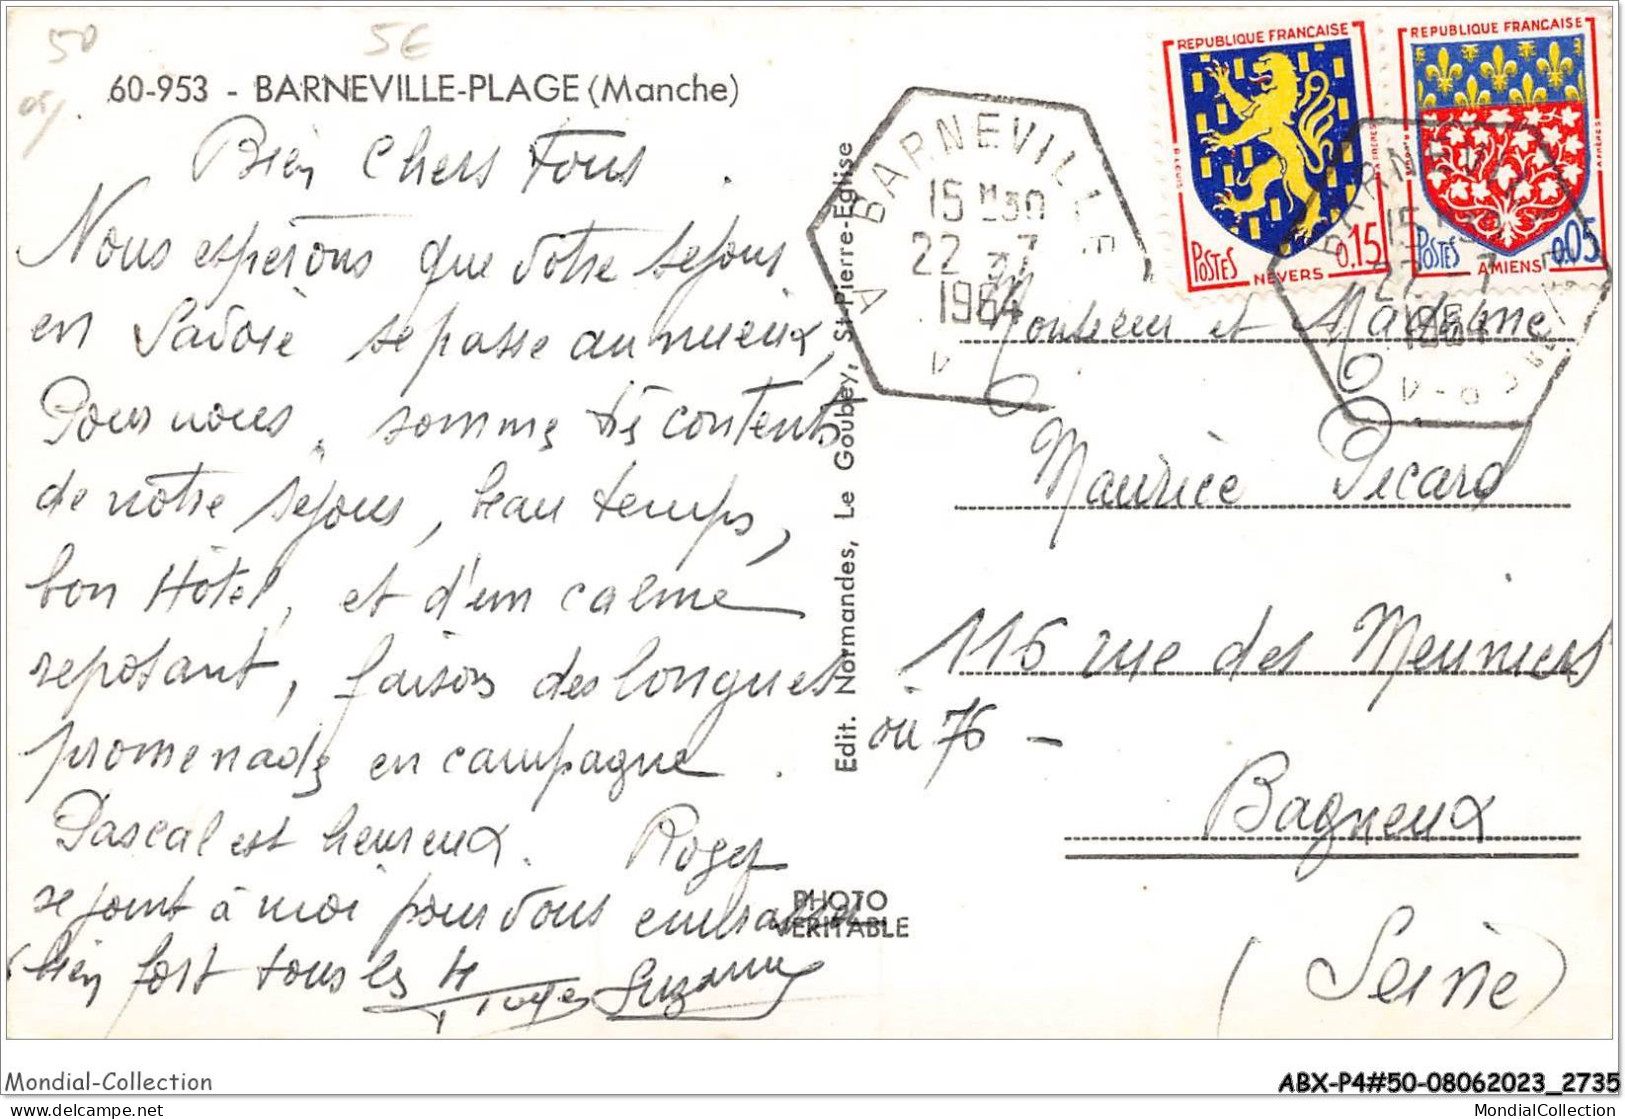 50
5€
60-953 - BARNEVILLE-PLAGE (Manche)
Bien Chers Tous.
Nous espérons que votre séjour
en Savoie se passe au mieux,
Pour nous, somme très contents
de notre séjour, beau temps,
bon Hôtel, et d'un calme
reposant, faisons des longues
promenades en campagne.
Pascal est heureux. Roger
se joint à moi pour vous embrasser
bien fort tous les 4
Suzanne
Edit. Normandes, Le Goubey, St-Pierre-Eglise
PHOTO
VERITABLE
BARNEVILLE
15H30
22-7
1964
REPUBLIQUE FRANCAISE
POSTES
0.15
NEVERS
REPUBLIQUE FRANCAISE
POSTES
0.05
AMIENS
BARNEVILLE
15H30
22-7
1964
Monsieur et Madame
Maurice Picard
116 rue des Meuniers
ou 76 -
Bagneux
(Seine)
Mondial-Collection
ABX-P4#50-08062023_2735
delcampe.net
MondialCollection